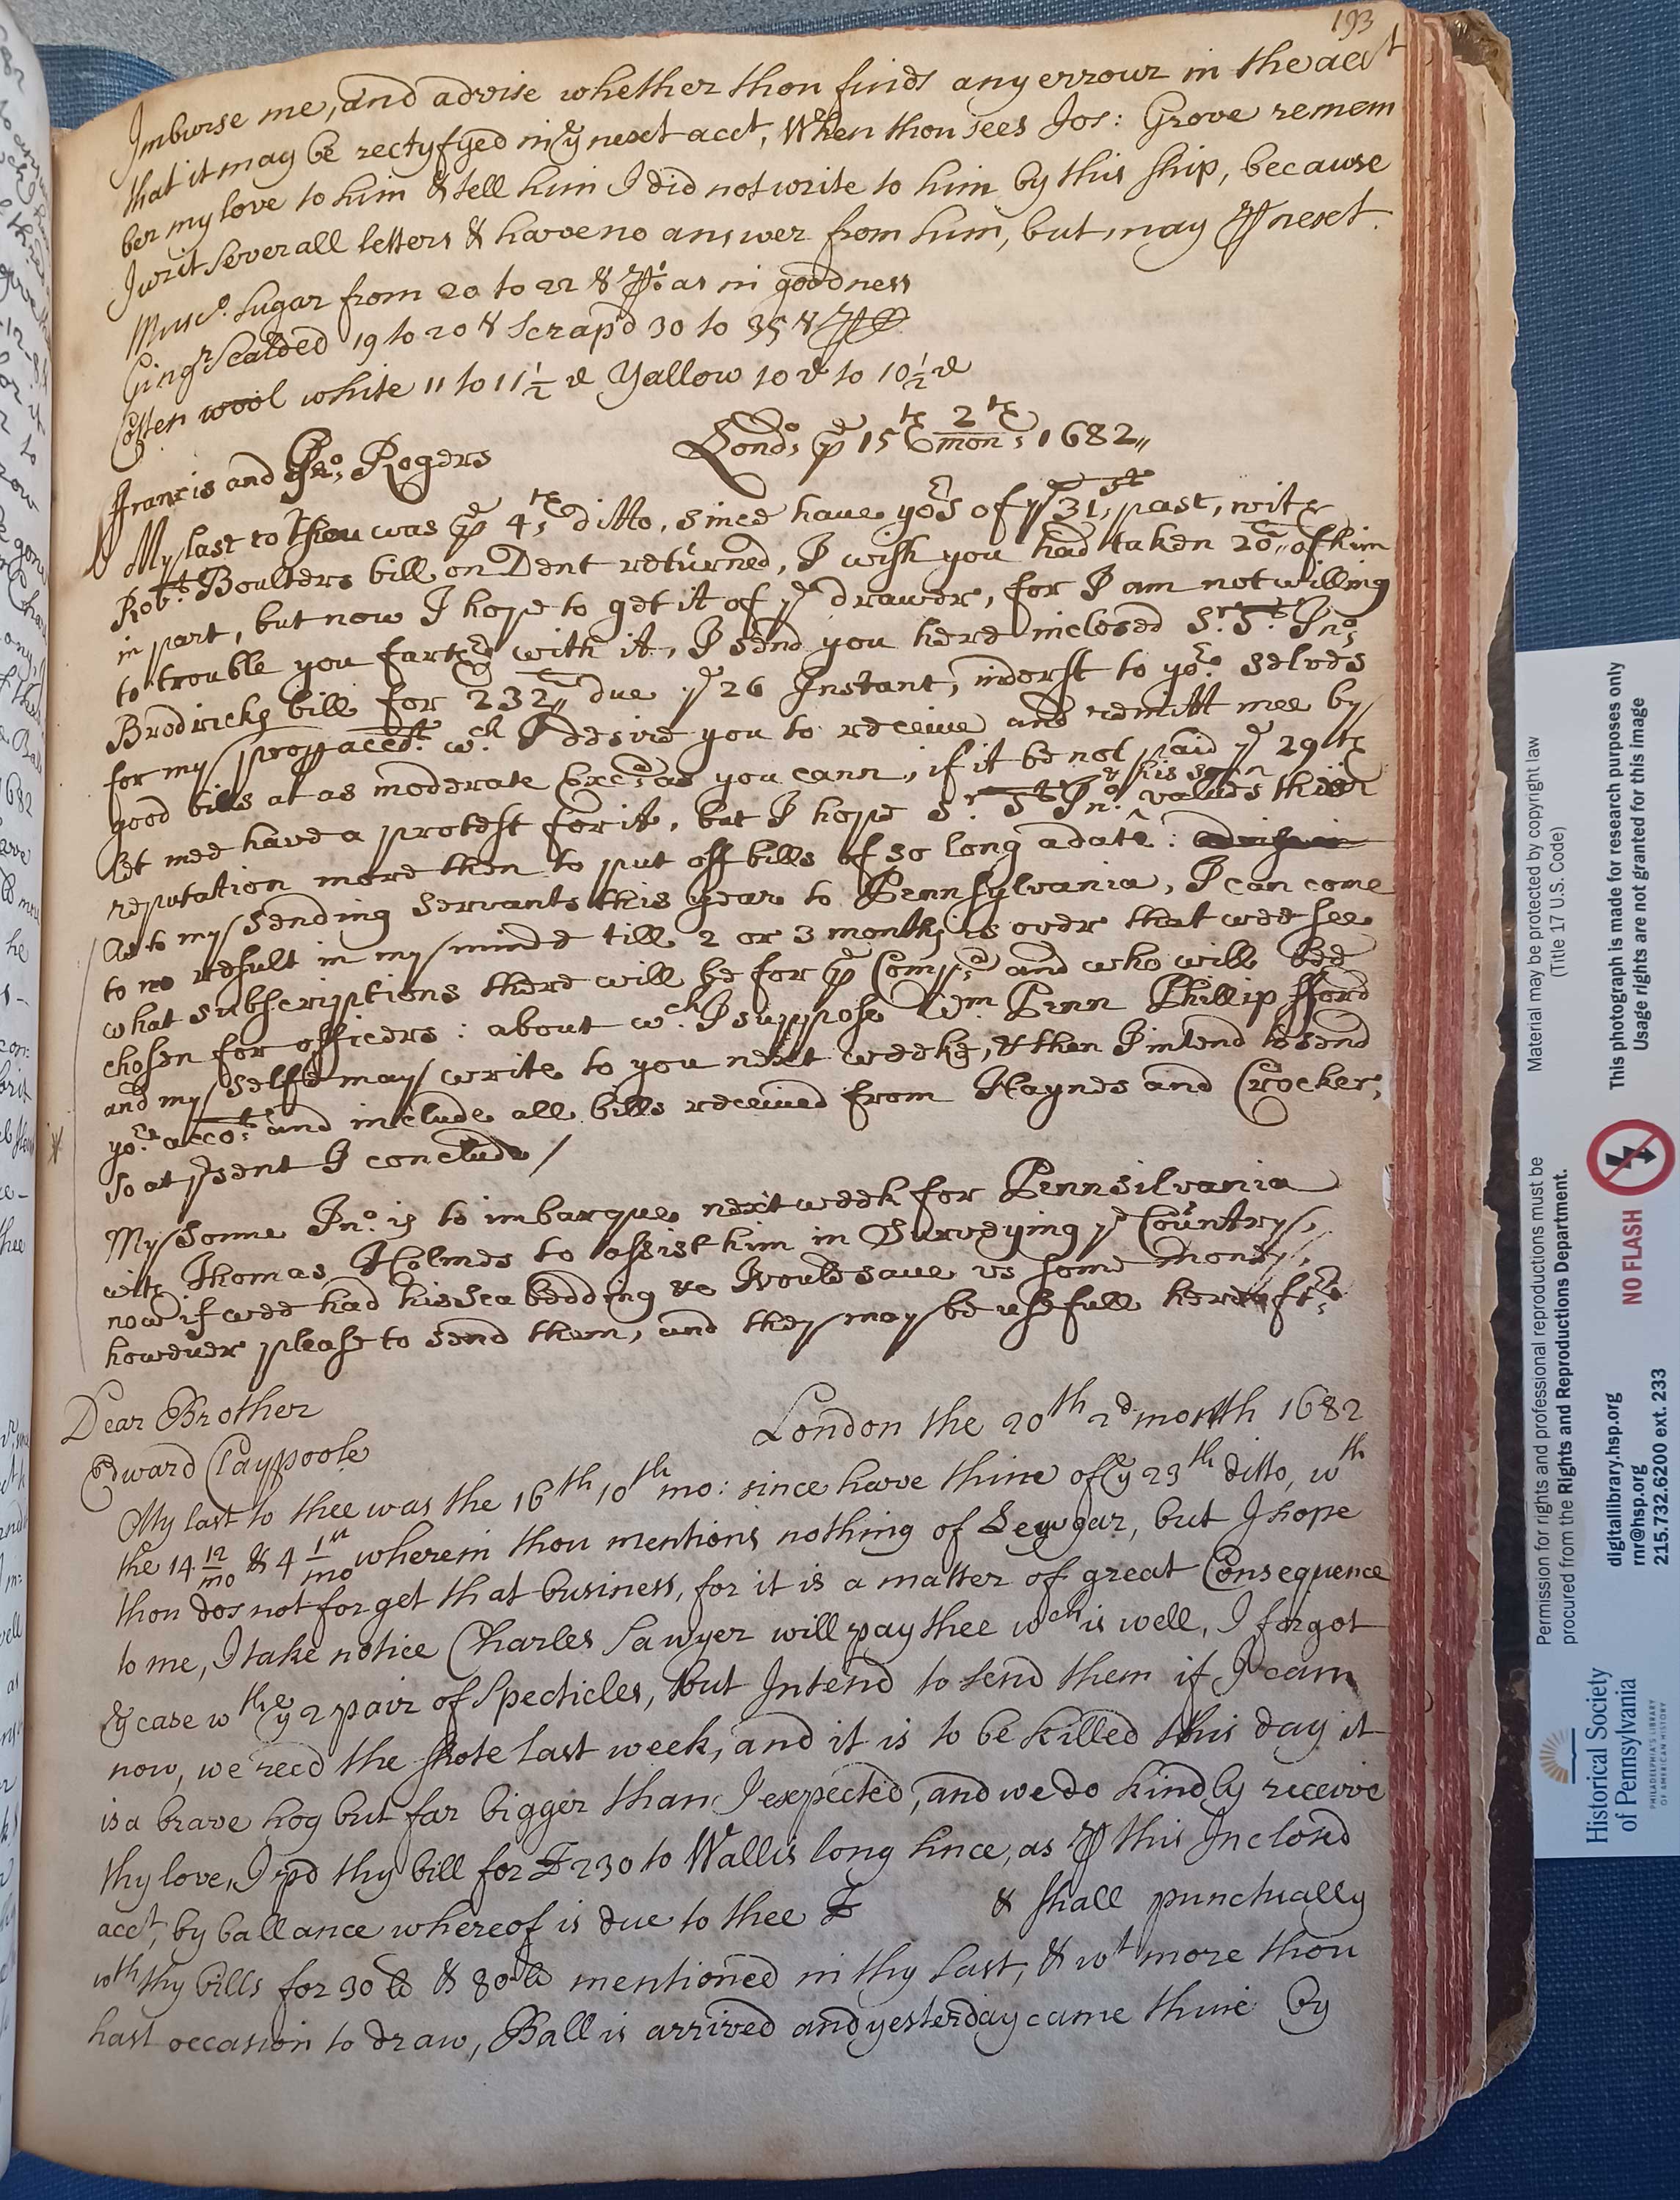 193
Imburse me, and advise whether thou finds any errour in the acct
that it may be rectyfyed in ye next acct, When thou sees Jos: Grove remem
ber my love to him & tell him I did not write to him by this ship, because
I writ severall letters & have no answer from him, but may next.
Musco. Sugar from 20 to 22 as in goodness
Gingr Scalded 19 to 20 & Scrap'd 30 to 35
Cotten wool white 11 to 11½ d Yallow 10 d to 10½ d
Lond: ye 15th 2th mon: 1682
Francis and Geo: Rogers
My last to Thou was ye 4th ditto, since have yors of ye 31st past, with
Robt. Boulters bill on Dent returned, I wish you had taken 20 of him
in part, but now I hope to get it of ye drawer, for I am not willing
to trouble you farther with it, I send you here inclosed Sr. St. Jno.
Brodricks bill for 232 due ye 26 Instant, indorst to yor. selves
for my propp accot. wch. I desire you to receive and remitt mee by
good bills at as moderate Exca as you cann, if it be not paid ye 29th
let mee have a protest for it, but I hope Sr. St. Jno. & his son values their
reputation more then to put off bills of so long a date:
As to my sending servants this year to Pennsylvania, I can come
to no result in my minde till 2 or 3 months is over that wee see
what subscriptions there will be for ye Compa: and who will bee
chosen for officers: about wch. I suppose Wm Penn Phillip fford
and my selfe may write to you next weeke, & then I intend to send
yor. accot. and include all bills received from Haynes and Crocker,
So at psent I conclude /
My Sonne Jno. is to imbarque next week for Pennsilvania
with Thomas Holmes to assist him in Surveying ye Country,
now if wee had his Sea bedding &c Would save us some money,
however please to send them, and they may be usefull hereaftr.
Dear Brother
London the 20th 2d month 1682
Edward Claypoole
My last to thee was the 16th 10th mo: since have thine of ye 23th ditto, wth
the 14 12/mo & 4 1st/mo wherein thou mentions nothing of Seyugar, but I hope
thou dos not forget that business, for it is a matter of great Consequence
to me, I take notice Charles Sawyer will pay thee wch is well, I forgot
ye case wth ye 2 pair of Specticles, but Intend to send them if I can
now, we recd the shote last week, and it is to be killed this day it
is a brave hog but far bigger than I expected, and we do kindly receive
thy love, I pd thy bill for £230 to Wallis long since, as this Inclosed
acct, by ballance whereof is due to thee £ & shall punctually
wth thy bills for 30 lb & 80 lb mentioned in thy last, & wt more thou
hast occasion to draw, Ball is arrived and yesterday came thine by
Historical Society
of Pennsylvania
PHILADELPHIA'S LIBRARY
OF AMERICAN HISTORY
digitallibrary.hsp.org
rnr@hsp.org
215.732.6200 ext. 233
NO FLASH
Permission for rights and professional reproductions must be
procured from the Rights and Reproductions Department.
This photograph is made for research purposes only
Usage rights are not granted for this image
Material may be protected by copyright law
(Title 17 U.S. Code)